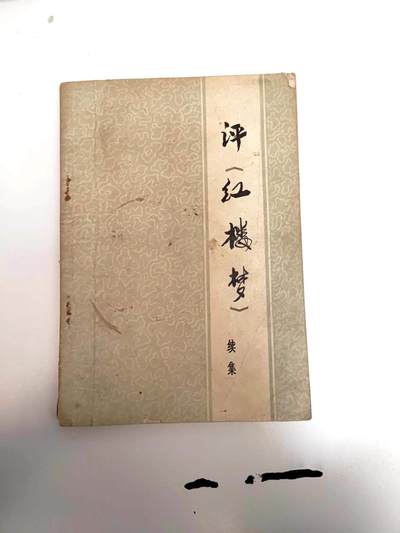 评《红楼梦》
续集